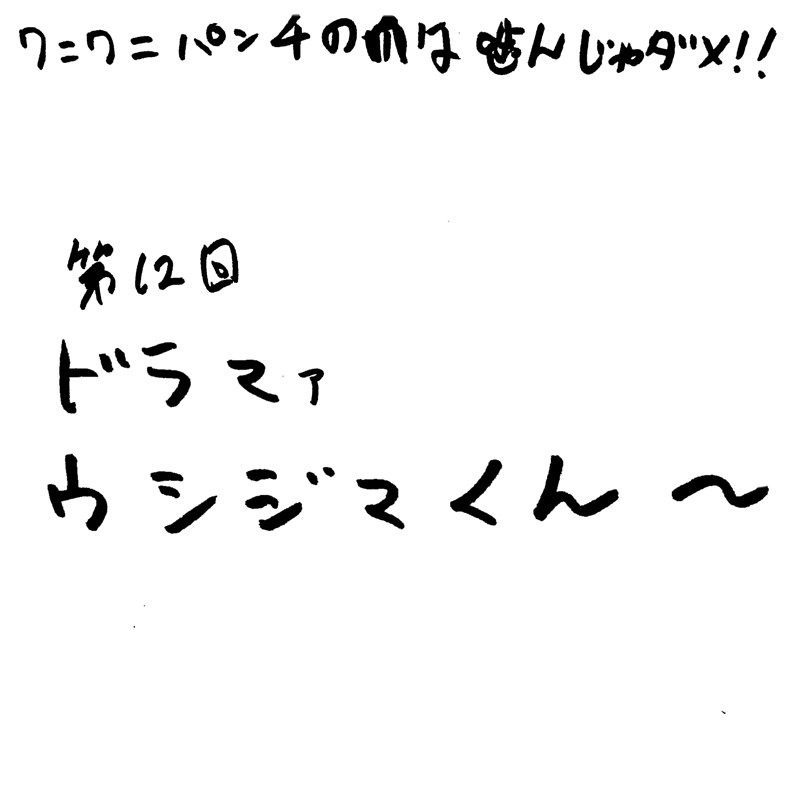 ワニワニパンチの爪は噛んじゃダメ!!
第12回
ドラマァ
ウシジマくん〜